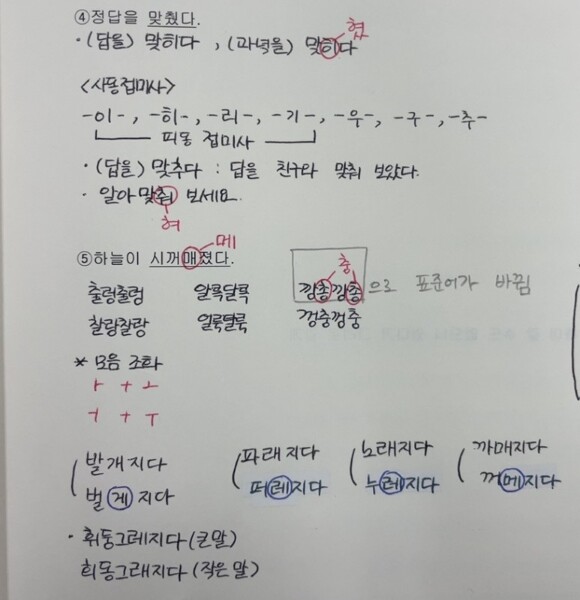 ④정답을 맞췄다.
·(답을) 맞히다 , (과녁을) 맞히다
혔
<사동접미사>
-이-, -히-, -리-, -기-, -우-, -구-, -추-
피동 접미사
·(답을) 맞추다 : 답을 친구와 맞춰 보았다.
· 알아맞춰 보세요.
혀
⑤하늘이 시꺼매졌다.
메
충
출렁출렁 알록달록 깡총깡총 으로 표준어가 바뀜
찰랑찰랑 얼룩덜룩 껑충껑충
* 모음 조화
ㅏ + ㅗ
ㅓ + ㅜ
발개지다 파래지다 노래지다 까매지다
벌게지다 퍼레지다 누레지다 꺼메지다
· 휘둥그레지다 (큰말)
회동그래지다 (작은 말)